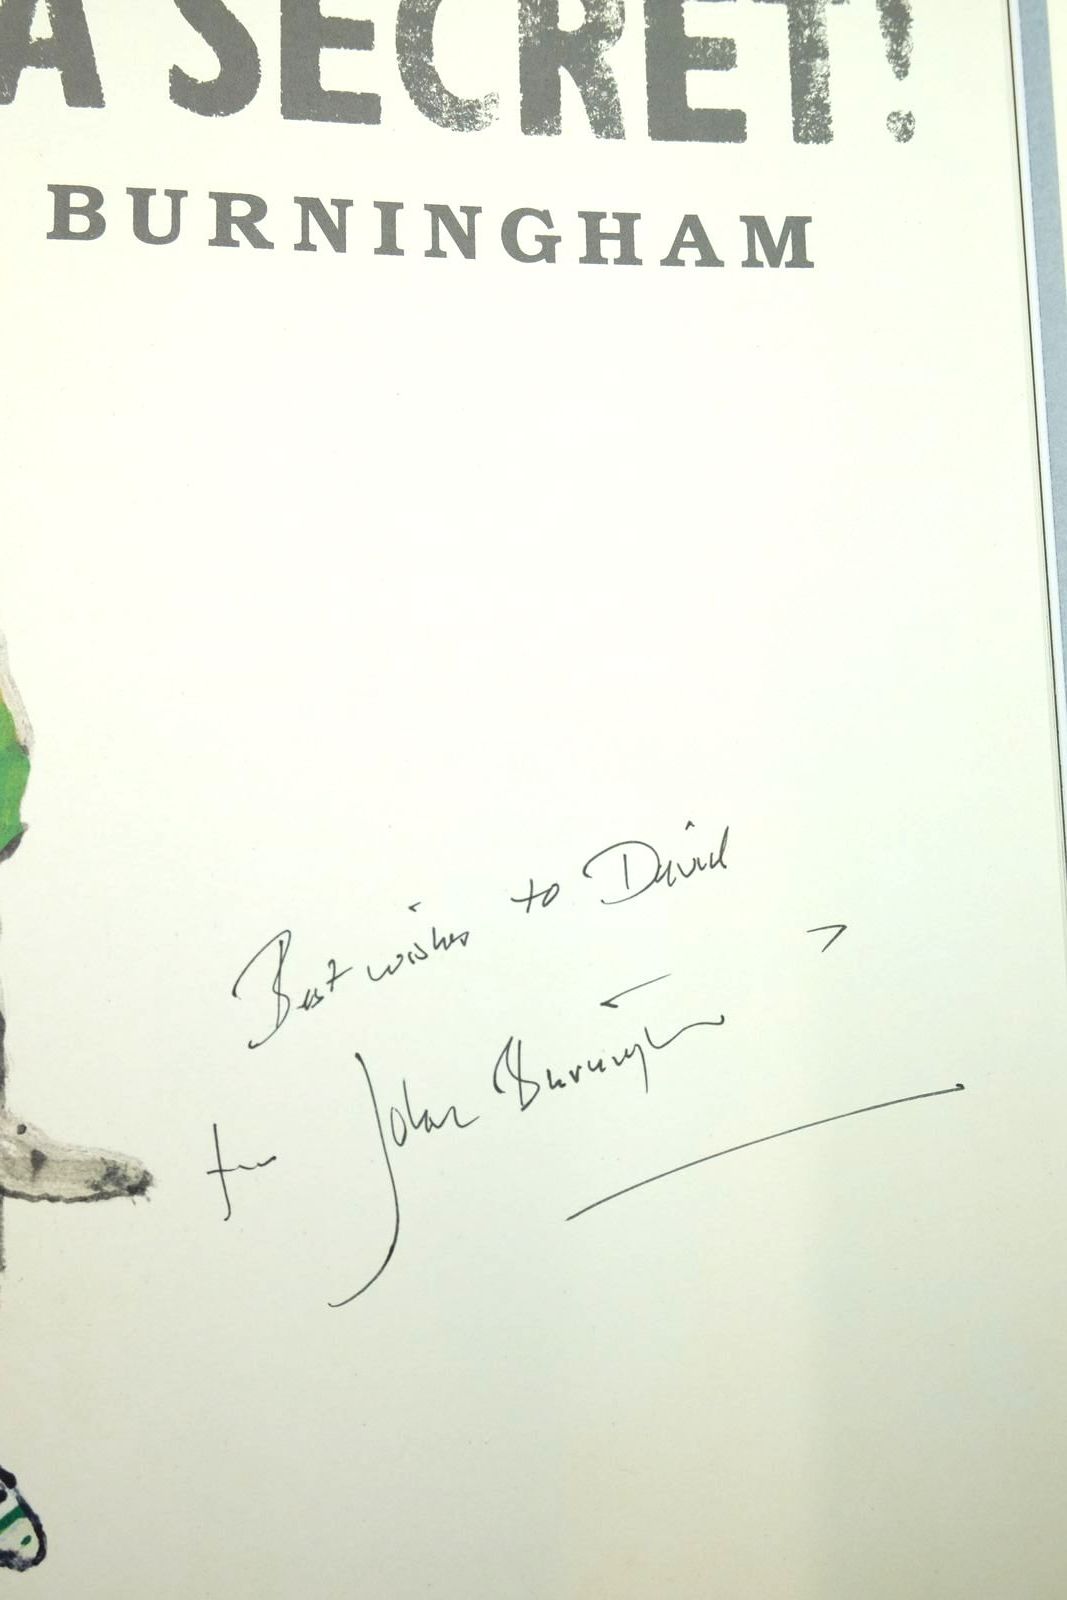 A SECRET!
BURNINGHAM
Best wishes to David
from John Burningham